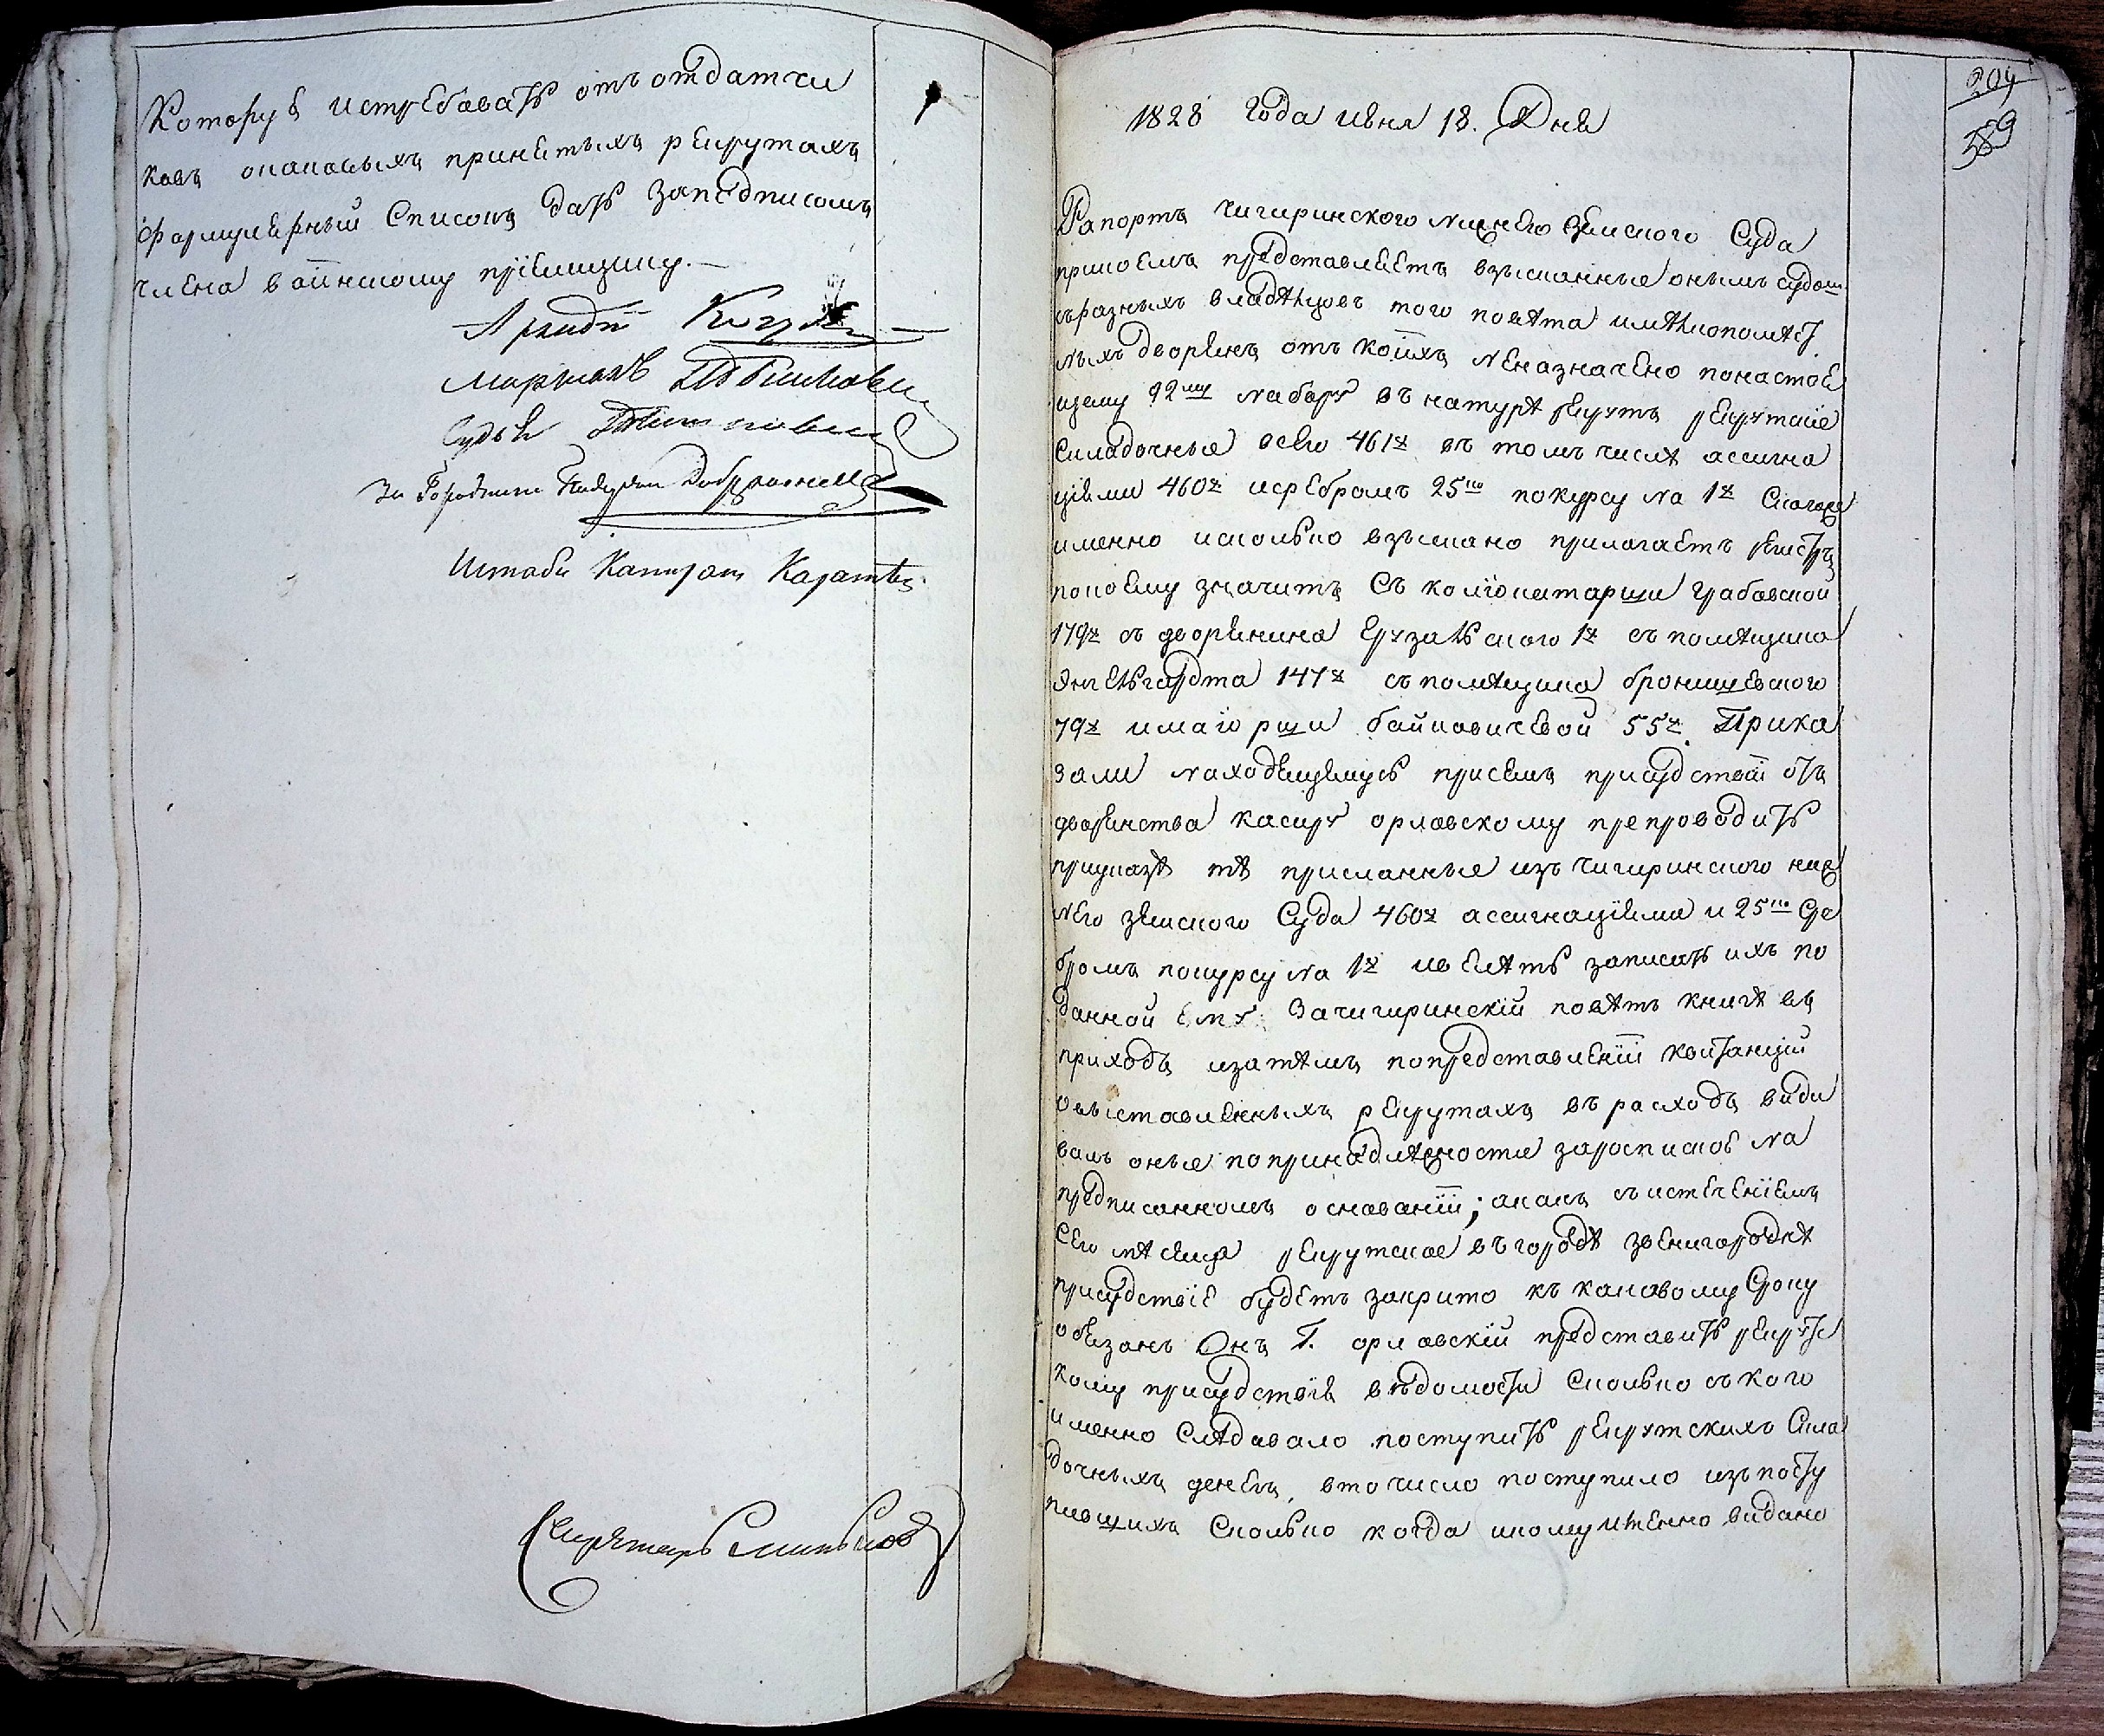 Которуя истребовать отъ отдатчи
ковъ онаковыхъ принятыхъ рекрутахъ
формулярный Списокъ дать заподписомъ
члена воинскому приемщику.—
Маршалъ
Судья
За Городничи
Штабъ Капитан
Секретарь
204
589
1828 Года июня 18. Дня
Рапортъ чигиринского нижнего земского Суда
прикоемъ представляетъ взысканные онымъ судом
съразныхъ владѣльцовъ того повѣта имѣниопомѣст
ныхъ дворянъ отъ коихъ неназначено понастоя
щему 92му набору въ натурѣ рекрутъ рекрутские
складочные всего 461 р въ томъ числѣ ассигна
циями 460 р исребромъ 25 ко покурсу на 1 р Скогоже
именно исколько взыскано прилагаетъ реистръ
покоему значитъ Съ колїокатарши грабовской
179 р съ дворянина Ерузальского 1 р съ помѣщика
Энгельгардта 147 р съ помѣщика бронишевского
79 р имаїорши байковичевой 55 р. Прика
зали находящемусь присемъ присудствїи отъ
дворянства касиру орловскому препроводить
приуказѣ тѣ присланные изъ чигиринского ниж
него земского Суда 460 р ассигнацїями и 25 ко Сре
бромъ покурсу на 1 р ивелѣть записать ихъ по
данной ему Зачигиринскїй повѣтъ книгѣ въ
приходъ изатѣмъ попредставленїи квитанцїй
овыставленныхъ рекрутахъ въ расходъ види
валъ оные попринадлѣжности заросписков на
предписанномъ основанїи; акакъ съистеченїемъ
Сего мѣсяца рекрутское въ городѣ звенигородкѣ
присудствїе будетъ закрито къ каковому Сроку
обязанъ Онъ Г. орловскїй представить рекрутс
кому присудствїя вѣдомости Сколько съкого
именно Слѣдовало поступить рекрутскихъ Скла
дочныхъ денегъ, вто число поступило изъпосту
пившихъ Сколько когда икому имѣнно видано